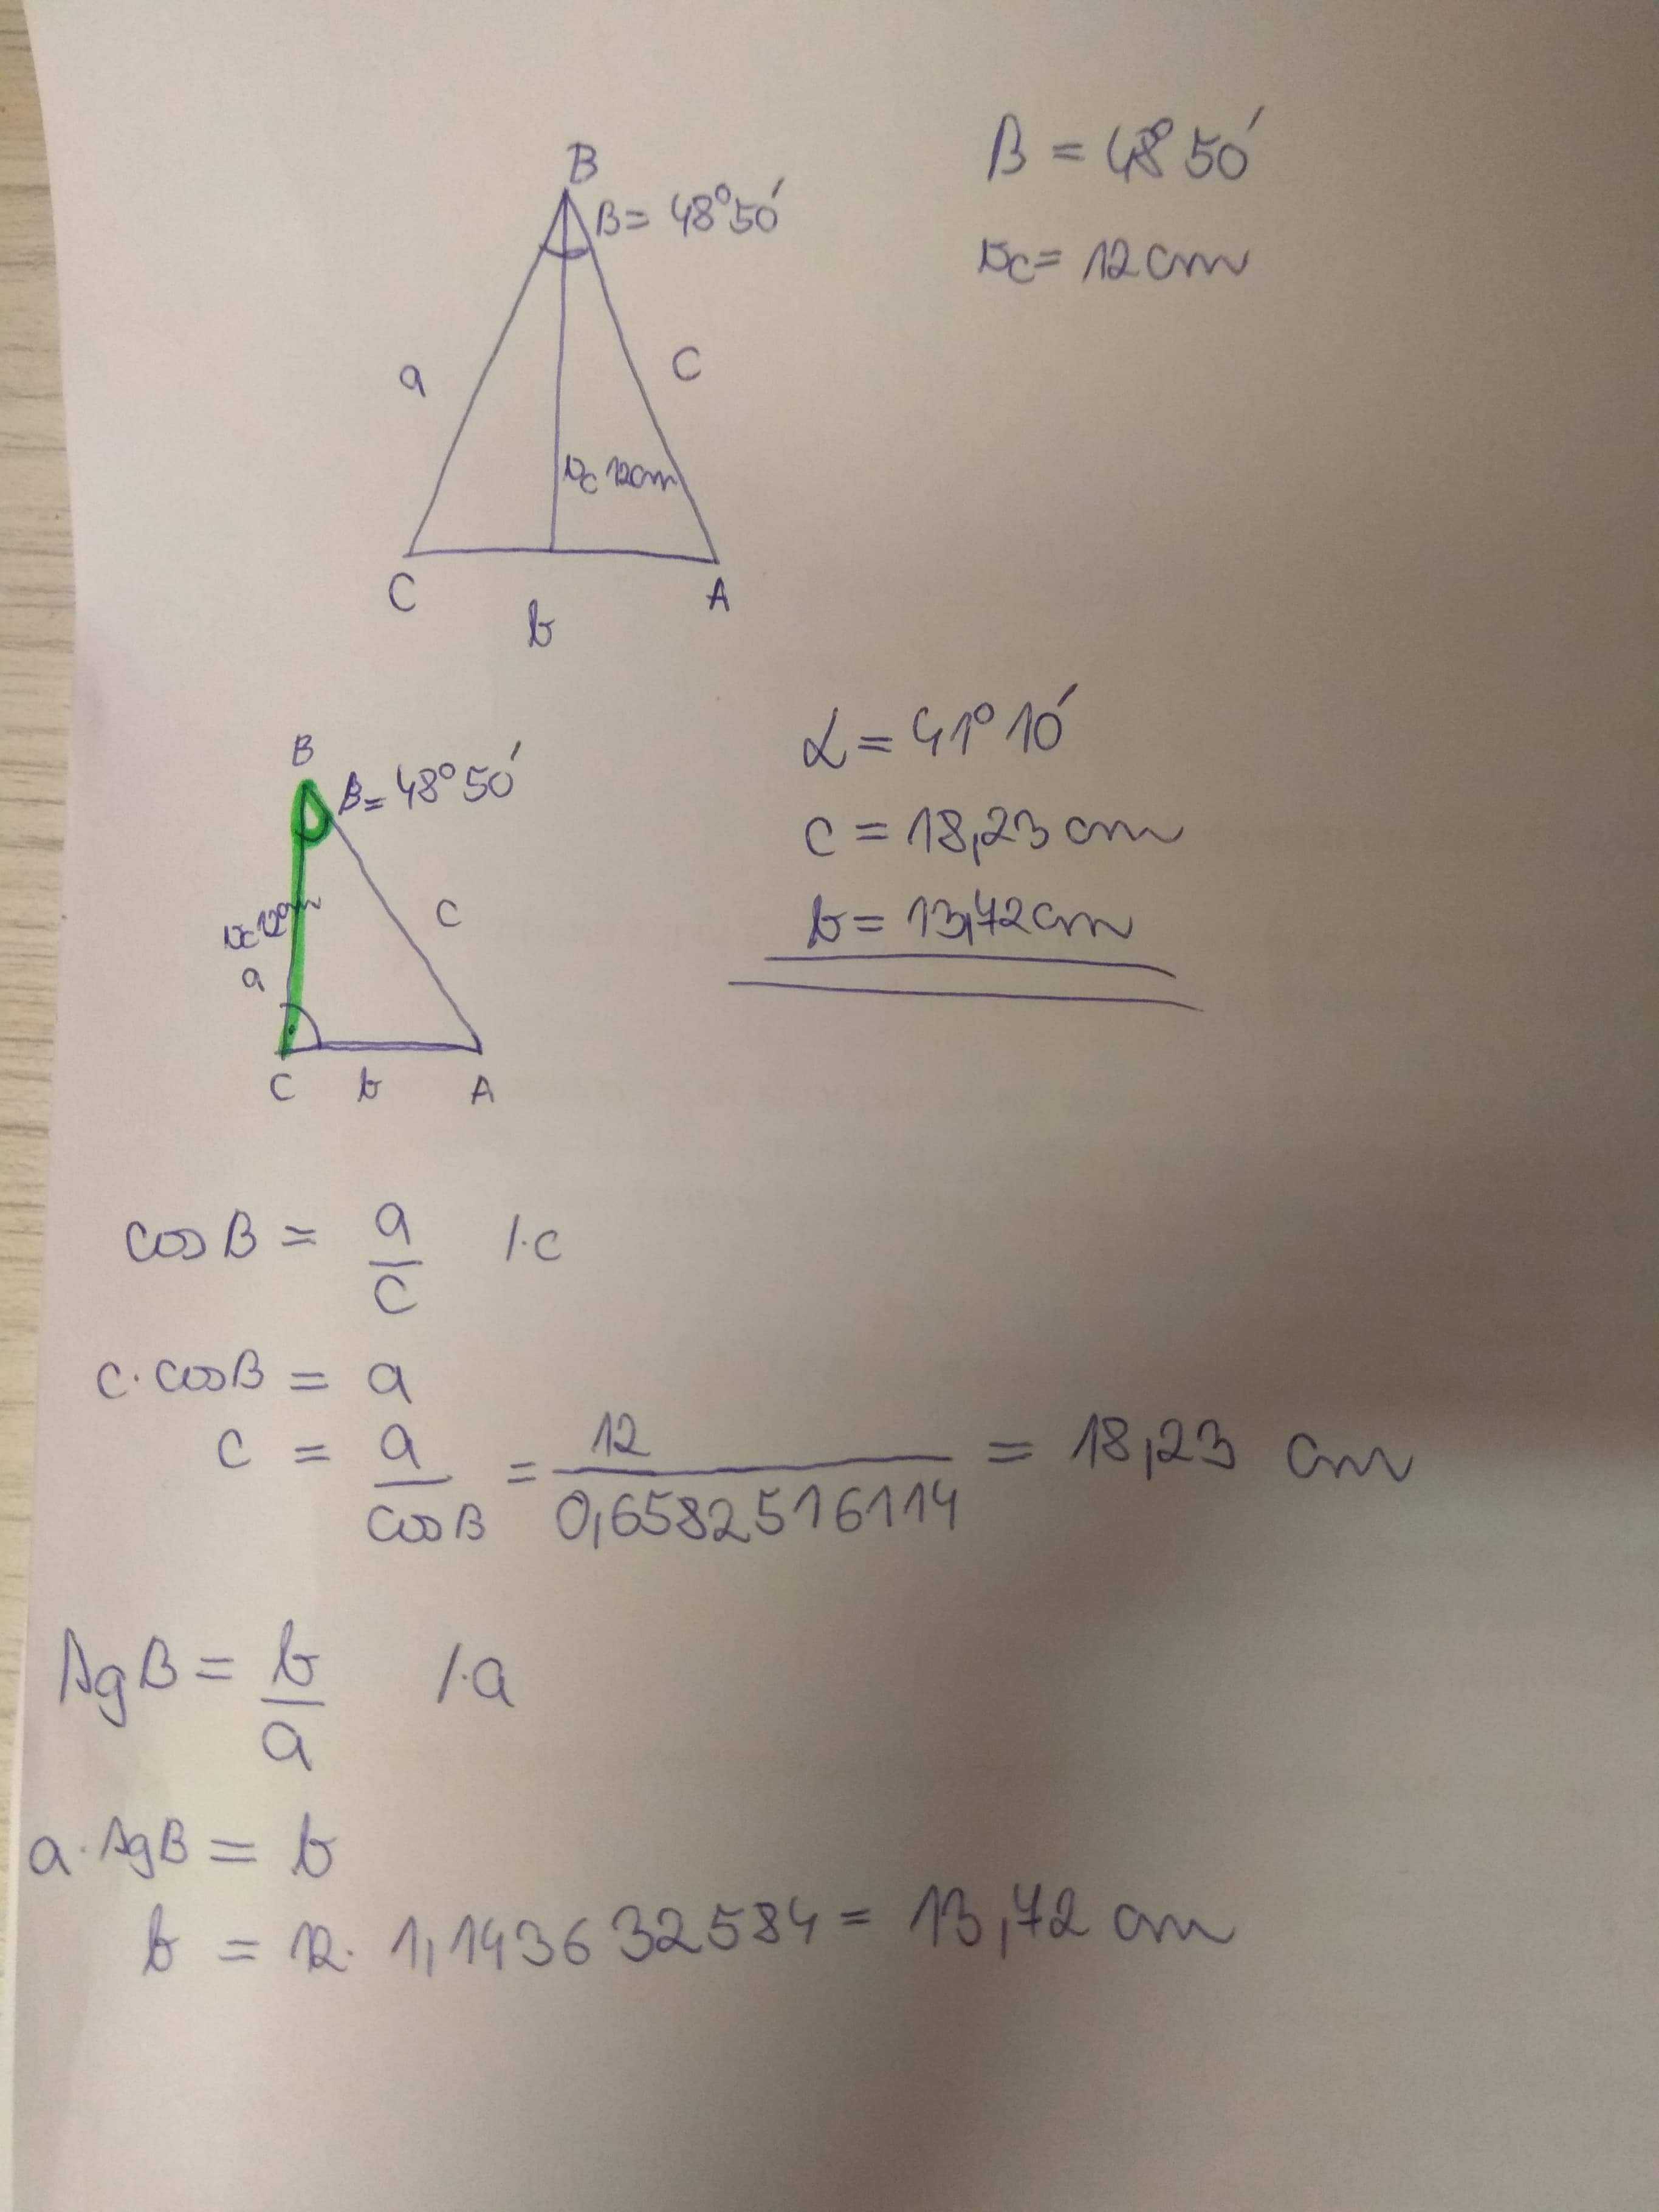 B
B = 48°50'
β = 48°50'
vc = 12 cm
a
c
vc 12cm
C
A
b
B
β = 48°50'
vc 12cm
c
a
C
b
A
α = 41°10'
c = 18,23 cm
b = 13,72 cm
cos B = a/c /·c
c·cosB = a
c = a/cosB = 12/0,6582516114 = 18,23 cm
tgB = b/a /·a
a·tgB = b
b = 12·1,143632584 = 13,72 cm